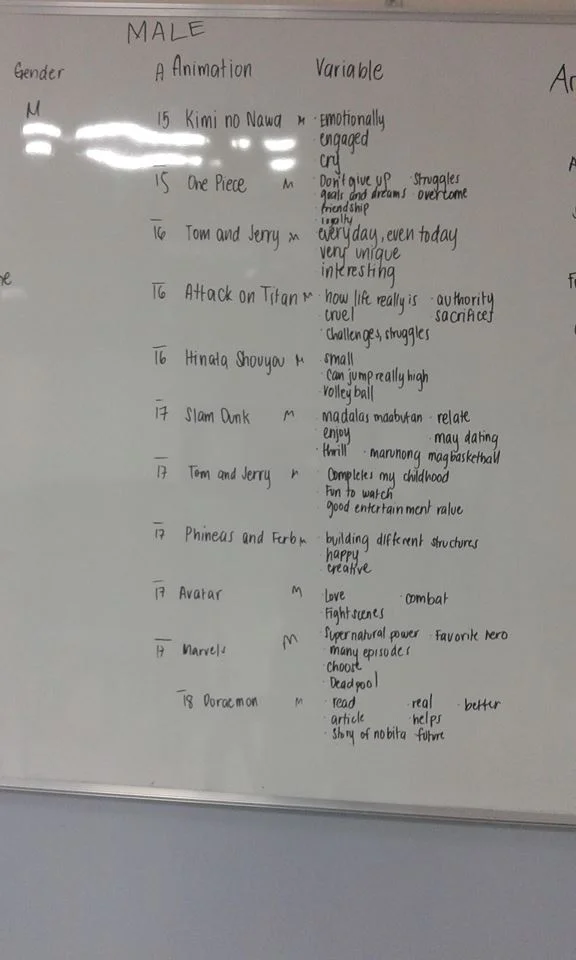 MALE
Gender A Animation Variable Ar
M
15 Kimi no Nawa M · Emotionally
· engaged
· cry
15 One Piece M · Don't give up · Struggles
· goals and dreams overcome
· friendship
· loyalty
16 Tom and Jerry M · everyday, even today
· very unique
· interesting
16 Attack on Titan M · how life really is · authority
· cruel sacrifices
· challenges, struggles
16 Hinata Shouyou M · small
· can jump really high
· volleyball
17 Slam Dunk M · madalas maabutan · relate
· enjoy · may dating
· thrill · marunong magbasketball
17 Tom and Jerry M · Completes my childhood
· Fun to watch
· good entertainment value
17 Phineas and Ferb M · building different structures
· happy
· creative
17 Avatar M · Love · combat
· Fight scenes
· Supernatural power · Favorite hero
17 Marvels M · many episodes
· choose
· Deadpool
18 Doraemon M · read · real · better
· article · helps
· story of nobita future